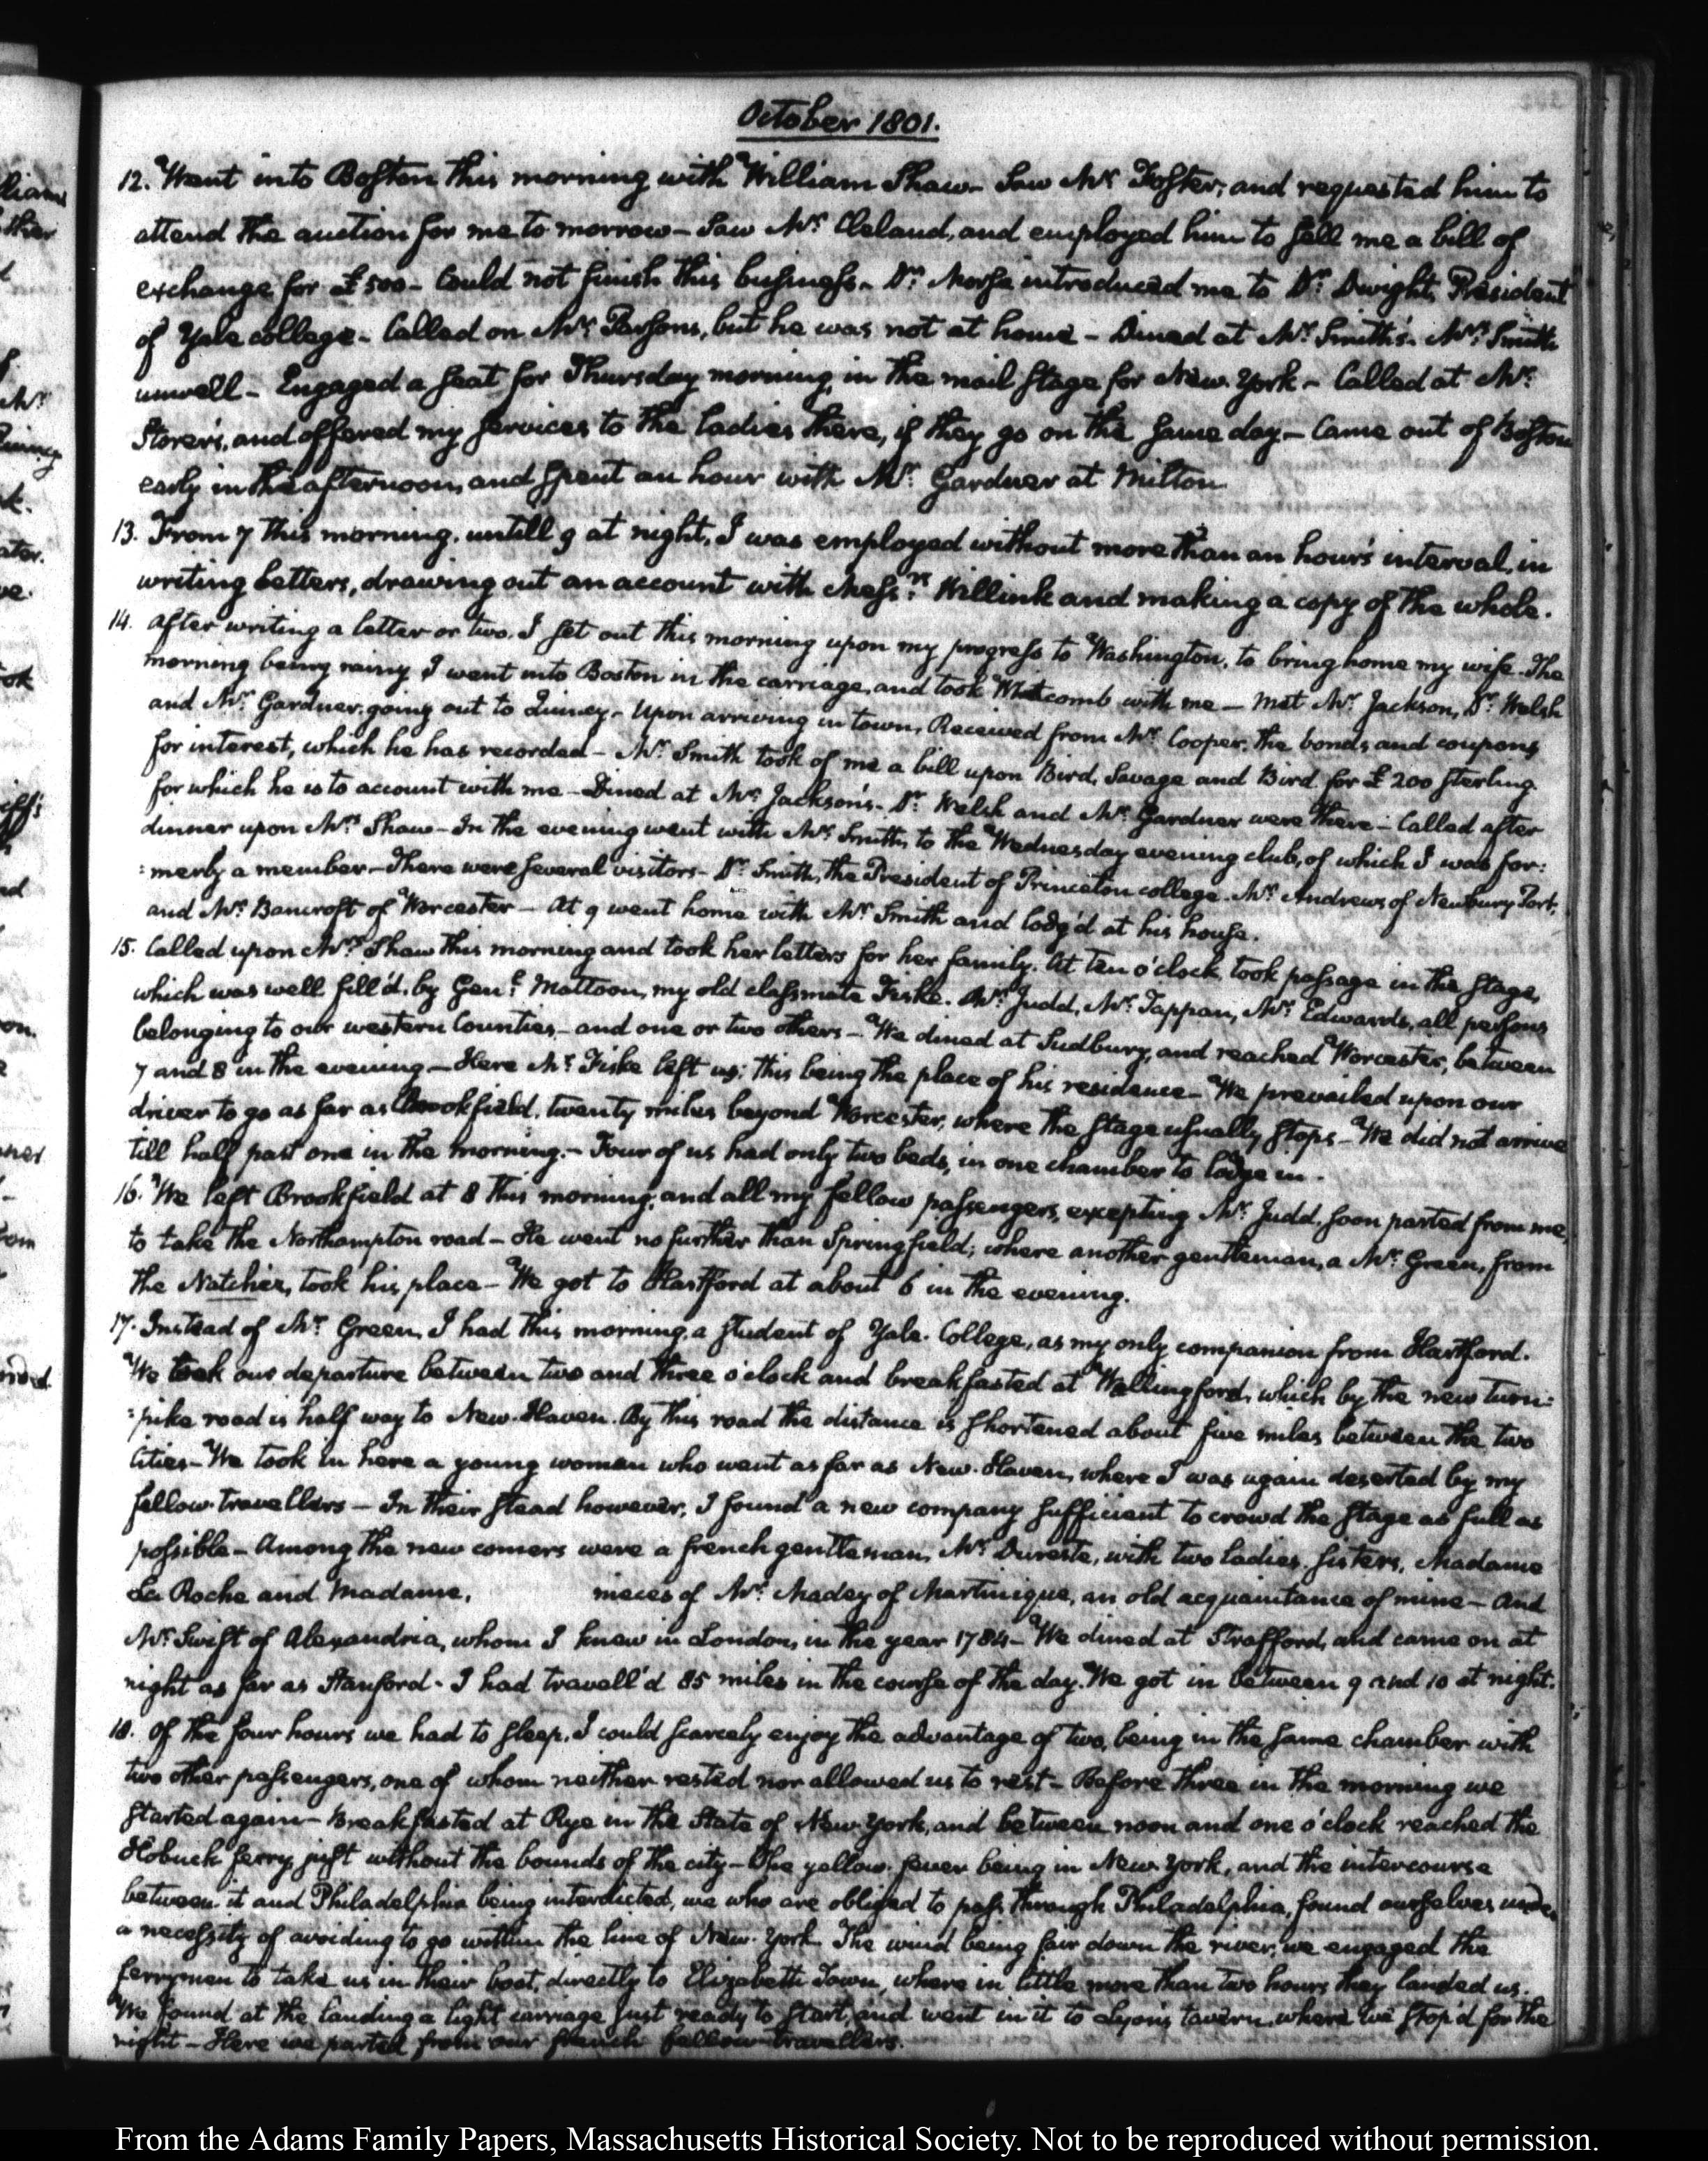 October 1801.
12. Went into Boston this morning with William Shaw — Saw Mr. Foster, and requested him to
attend the auction for me to morrow — Saw Mr. Cleland, and employed him to sell me a bill of
exchange for £500 — Could not finish this business. Dr. Morse introduced me to Dr. Dwight, President
of Yale college — Called on Mr. Parsons, but he was not at home — Dined at Mr. Smith's. Mrs. Smith
unwell — Engaged a seat for Thursday morning, in the mail stage for New-York — Called at Mr.
Storer's, and offered my services to the ladies there, if they go on the same day — Came out of Boston
early in the afternoon, and spent an hour with Mr. Gardner at Milton.
13. From 7 this morning, untill 9 at night, I was employed without more than an hour's interval, in
writing letters, drawing out an account with Messrs. Willink and making a copy of the whole.
14. After writing a letter or two, I set out this morning upon my progress to Washington, to bring home my wife. The
morning being rainy I went into Boston in the carriage, and took Whitcomb with me — Met Mr. Jackson, Dr. Welsh
and Mr. Gardner, going out to Quincy — Upon arriving in town, Received from Mr. Cooper, the bonds and coupons
for interest, which he has recorded — Mr. Smith took of me a bill upon Bird, Savage and Bird for £200 sterling
for which he is to account with me — Dined at Mr. Jackson's. Dr. Welsh and Mr. Gardner were there — Called after
dinner upon Mrs. Shaw — In the evening went with Mr. Smith, to the Wednesday evening club, of which I was for:
:merly a member — There were several visitors — Dr. Smith, the President of Princeton college. Mr. Andrews of Newbury Port,
and Mr. Bancroft of Worcester — At 9 went home with Mr. Smith and lodg'd at his house.
15. Called upon Mrs. Shaw this morning and took her letters for her family. At ten o'clock, took passage in the stage,
which was well fill'd, by Genl. Mattoon, my old classmate Fiske. Mr. Judd, Mr. Tappan, Mr. Edwards, all persons
belonging to our western Counties — and one or two others — We dined at Sudbury, and reached Worcester, between
7 and 8 in the evening — Here Mr. Fiske left us; this being the place of his residence — We prevailed upon our
driver to go as far as Brookfield, twenty miles beyond Worcester, where the stage usually stops — We did not arrive
till half past one in the morning. — Four of us had only two beds, in one chamber to lodge in.
16. We left Brookfield at 8 this morning, and all my fellow passengers, excepting Mr. Judd, soon parted from me,
to take the Northampton road — He went no further than Springfield; where another gentleman, a Mr. Green, from
the Natchez, took his place — We got to Hartford at about 6 in the evening.
17. Instead of Mr. Green, I had this morning, a student of Yale-College, as my only companion from Hartford.
We took our departure between two and three o'clock and breakfasted at Wallingford, which by the new turn:
:pike road is half way to New-Haven. By this road the distance is shortened about five miles between the two
Cities — We took in here a young woman who went as far as New-Haven, where I was again deserted by my
fellow-travellers — In their stead however, I found a new company sufficient to crowd the stage as full as
possible — Among the new comers were a french gentleman, Mr. Dureste, with two ladies, sisters, Madame
La Roche and Madame, nieces of Mr. Madey of Martinique, an old acquaintance of mine — And
Mr. Swift of Alexandria, whom I knew in London, in the year 1784 — We dined at Strafford, and came on at
night as far as Stanford. I had travell'd 85 miles in the course of the day. We got in between 9 and 10 at night.
18. Of the four hours we had to sleep, I could scarcely enjoy the advantage of two, being in the same chamber with
two other passengers, one of whom neither rested nor allowed us to rest — Before three in the morning we
started again — Breakfasted at Rye in the State of New-York, and between noon and one o'clock reached the
Hobuck ferry, just without the bounds of the city — The yellow-fever being in New-York, and the intercourse
between it and Philadelphia being interdicted, we who are obliged to pass through Philadelphia, found ourselves under
a necessity of avoiding to go within the line of New-York. The wind being fair down the river, we engaged the
ferrymen to take us in their boat, directly to Elizabeth Town, where in little more than two hours they landed us.
We found at the landing a light carriage just ready to start, and went in it to Lyon's tavern, where we stop'd for the
night — Here we parted from our french fellow-travellers.
From the Adams Family Papers, Massachusetts Historical Society. Not to be reproduced without permission.